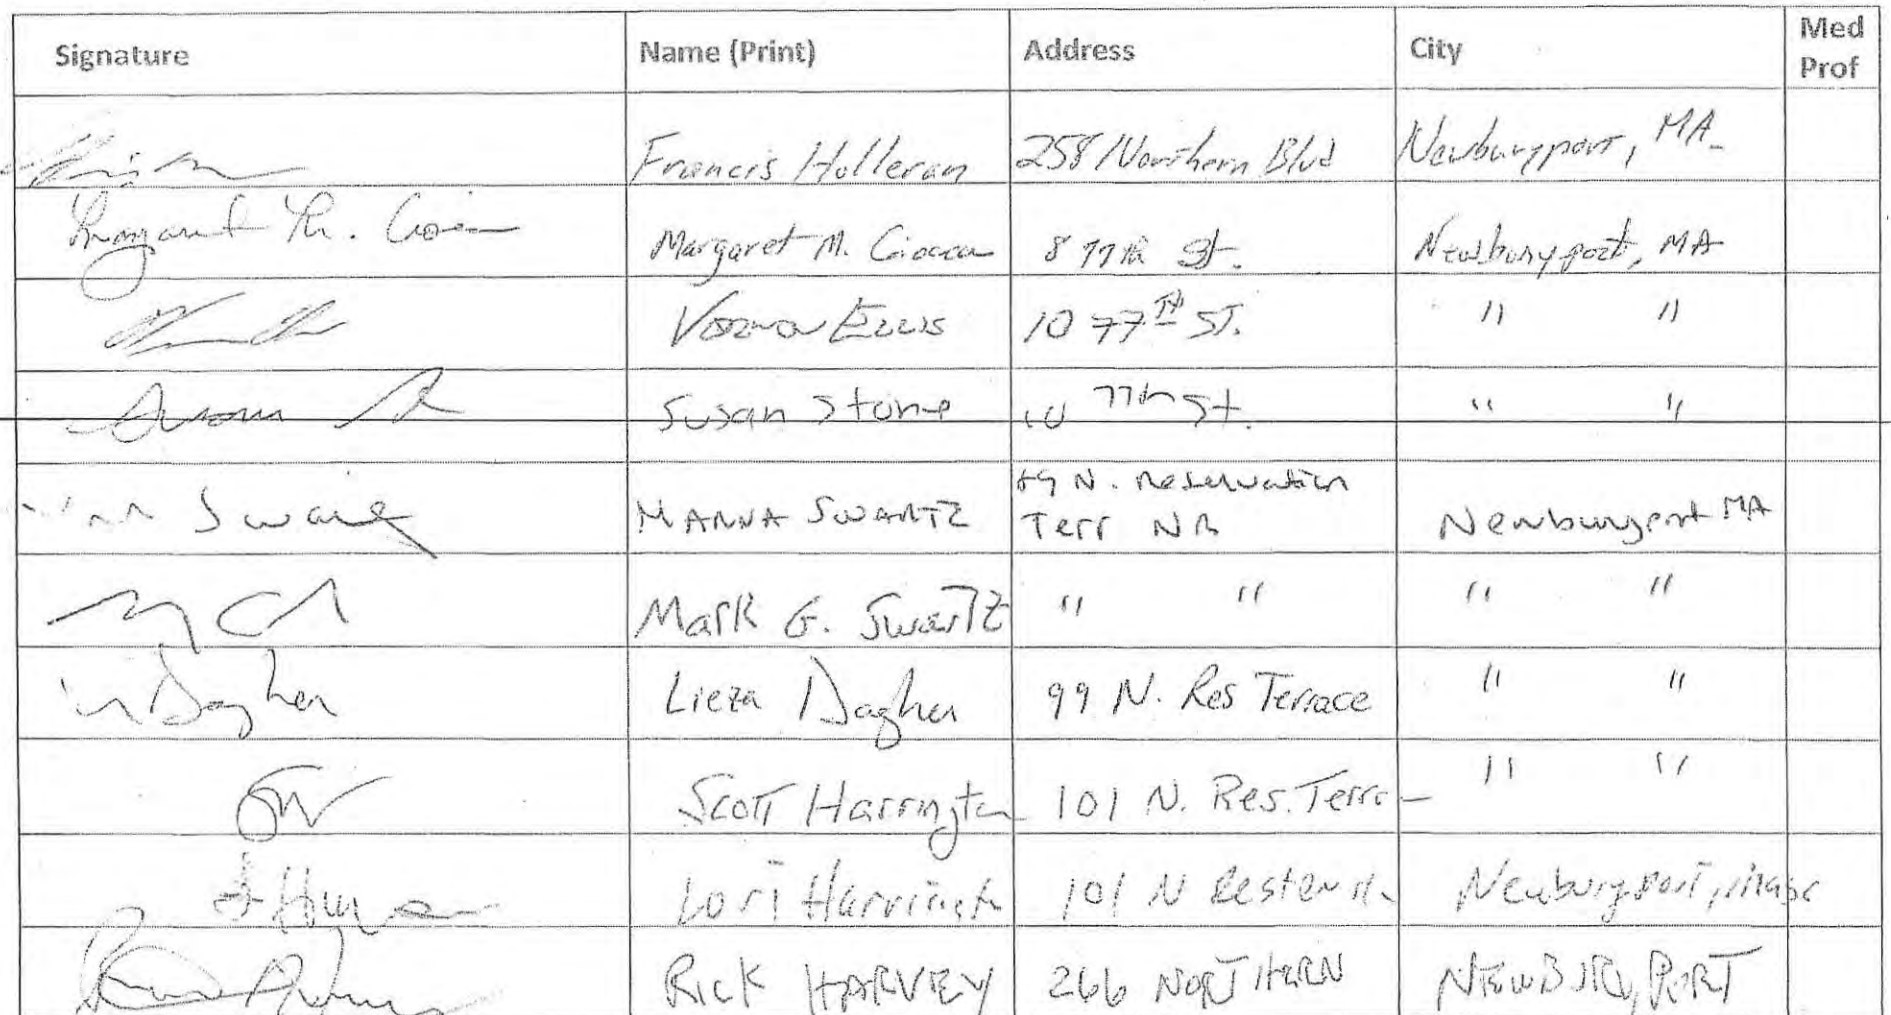 Signature Name (Print) Address City Med Prof
Francis Holleran 258 Northern Blvd Newburyport, MA
Margaret M. Ciocca Margaret M. Ciocca 8 77th St. Newburyport, MA
Ellis 10 77TH ST. " "
Susan Stone 10 77th St. " "
Swartz MANNA SWARTZ N. Reservation Terr Newburyport MA
Mark G. Swartz " " " "
Dagher Lieza Dagher 99 N. Res Terrace " "
Scott Harrington 101 N. Res. Terra " "
Lori Harrington 101 N Newburyport, Mass
RICK HARVEY 266 NORTHERN NEWBURYPORT